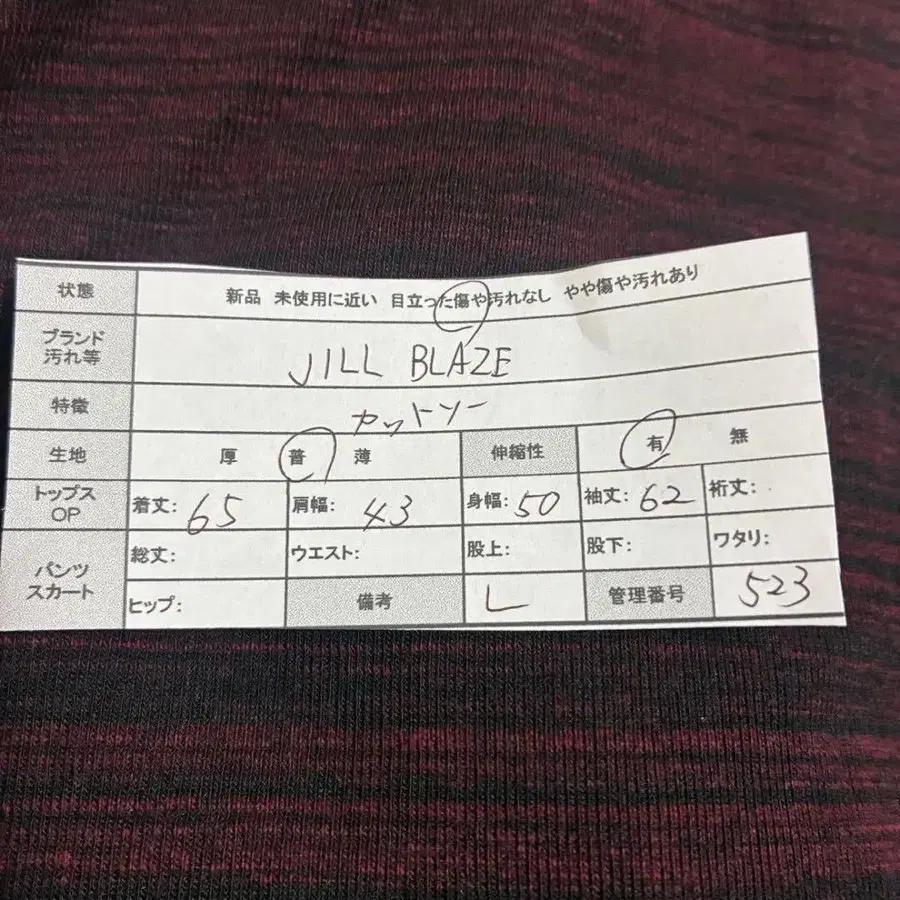 状態 新品 未使用に近い 目立った傷や汚れなし やや傷や汚れあり
ブランド
汚れ等
JILL BLAZE
特徴 カットソー
生地 厚 普 薄 伸縮性 有 無
トップス
OP
着丈: 65 肩幅: 43 身幅: 50 袖丈: 62 裄丈:
パンツ
スカート
総丈: ウエスト: 股上: 股下: ワタリ:
ヒップ: 備考 L 管理番号 523